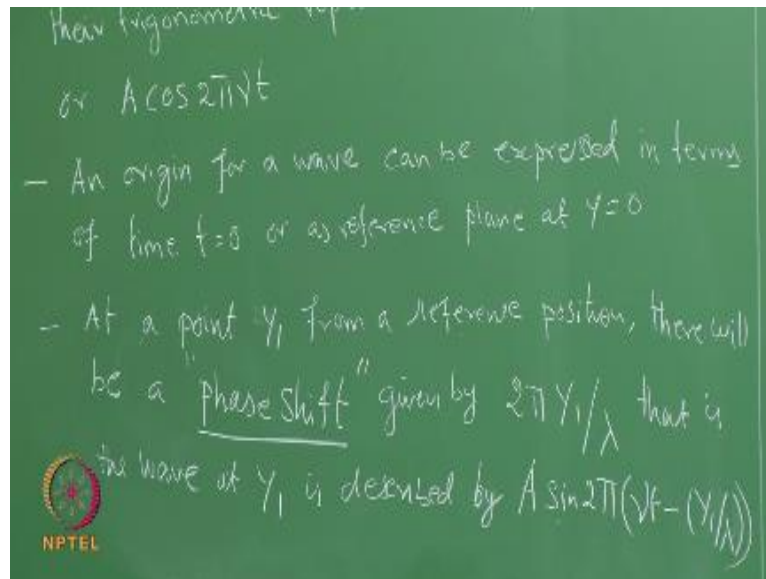 their trigonometric
or A cos 2πνt
– An origin for a wave can be expressed in terms
of time t=0 or as reference plane at Y=0
– At a point Y₁ from a reference position, there will
be a "phase shift" given by 2πY₁/λ that is
the wave at Y₁ is described by A sin2π(νt–(Y₁/λ))
NPTEL